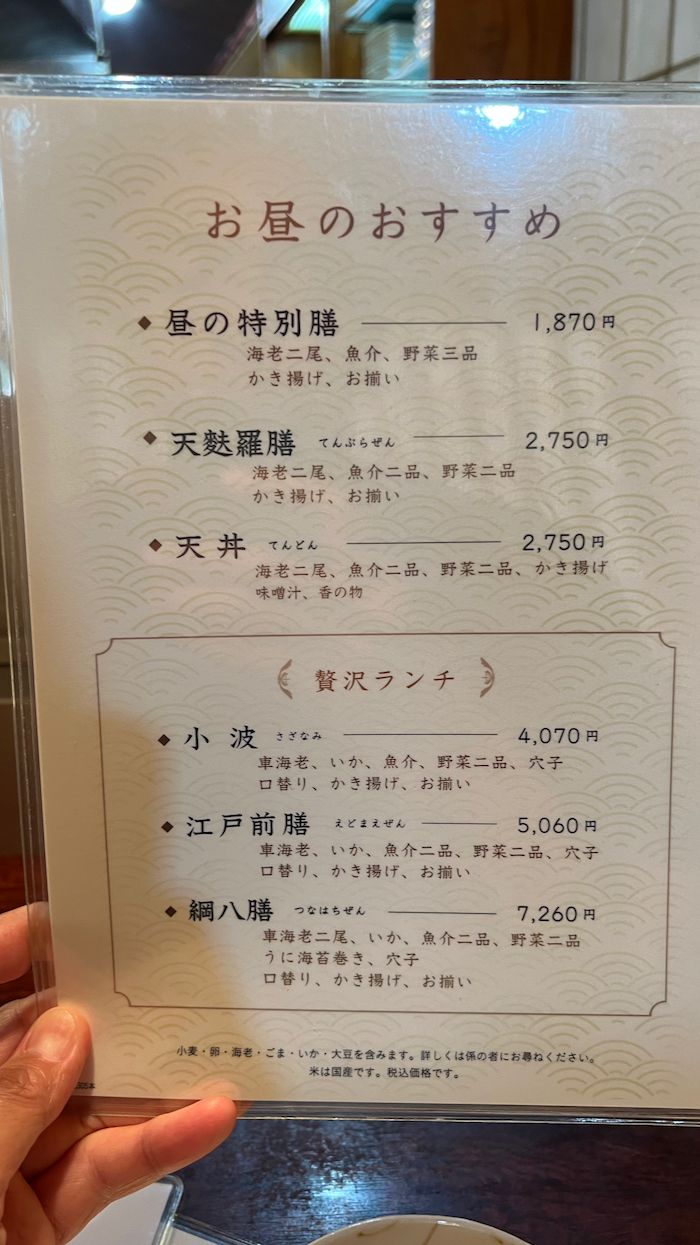 お昼のおすすめ
◆ 昼の特別膳 1,870円
海老二尾、魚介、野菜三品
かき揚げ、お揃い
◆ 天麩羅膳 てんぷらぜん 2,750円
海老二尾、魚介二品、野菜二品
かき揚げ、お揃い
◆ 天丼 てんどん 2,750円
海老二尾、魚介二品、野菜二品、かき揚げ
味噌汁、香の物
贅沢ランチ
◆ 小波 さざなみ 4,070円
車海老、いか、魚介、野菜二品、穴子
口替り、かき揚げ、お揃い
◆ 江戸前膳 えどまえぜん 5,060円
車海老、いか、魚介二品、野菜二品、穴子
口替り、かき揚げ、お揃い
◆ 綱八膳 つなはちぜん 7,260円
車海老二尾、いか、魚介二品、野菜二品
うに海苔巻き、穴子
口替り、かき揚げ、お揃い
小麦・卵・海老・ごま・いか・大豆を含みます。詳しくは係の者にお尋ねください。
米は国産です。税込価格です。